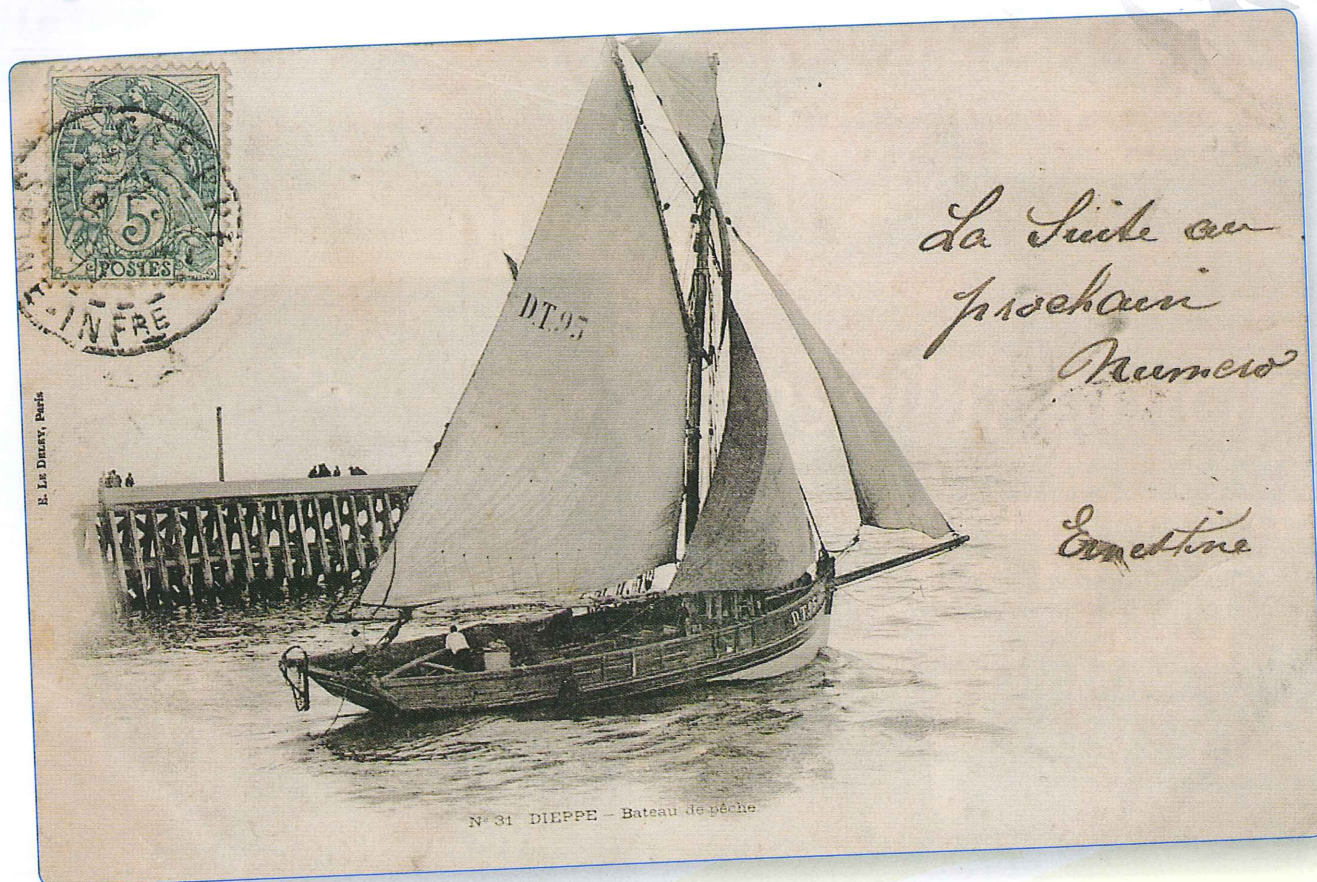 5c
POSTES
INFRE
E. LE DELEY, Paris
D.T.95
D.T.95
La Suite au
prochain
Numero
Ernestine
N° 31 DIEPPE – Bateau de pêche